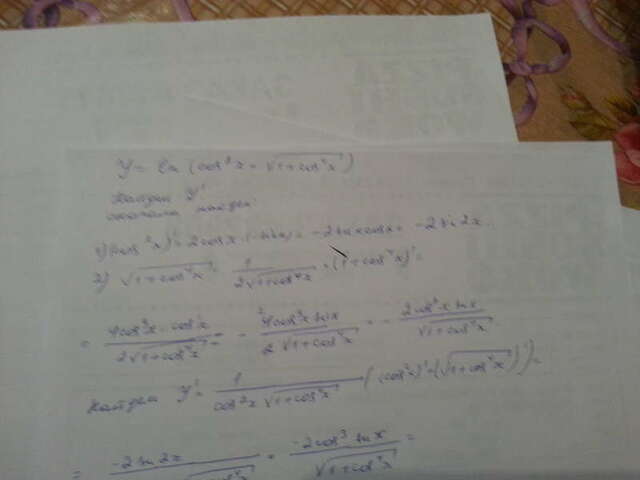 y = ln (cos²x + √(1+cos⁴x))
Найдем y'
сначала найдем
1) (cos²x)' = 2cosx·(-sinx) = -2sinxcosx = -2sin2x.
2) √(1+cos⁴x)' = 1/(2√(1+cos⁴x)) · (1+cos⁴x)' =
= (4cos³x · cos'x)/(2√(1+cos⁴x)) = - (4cos³x sinx)/(2√(1+cos⁴x)) = - (2cos³x sinx)/(√(1+cos⁴x))
Найдем y' = 1/(cos²x √(1+cos⁴x)) ((cos²x)' + (√(1+cos⁴x))') =
= -2sin2x + (-2cos³ sinx)/(√(1+cos⁴x)) =